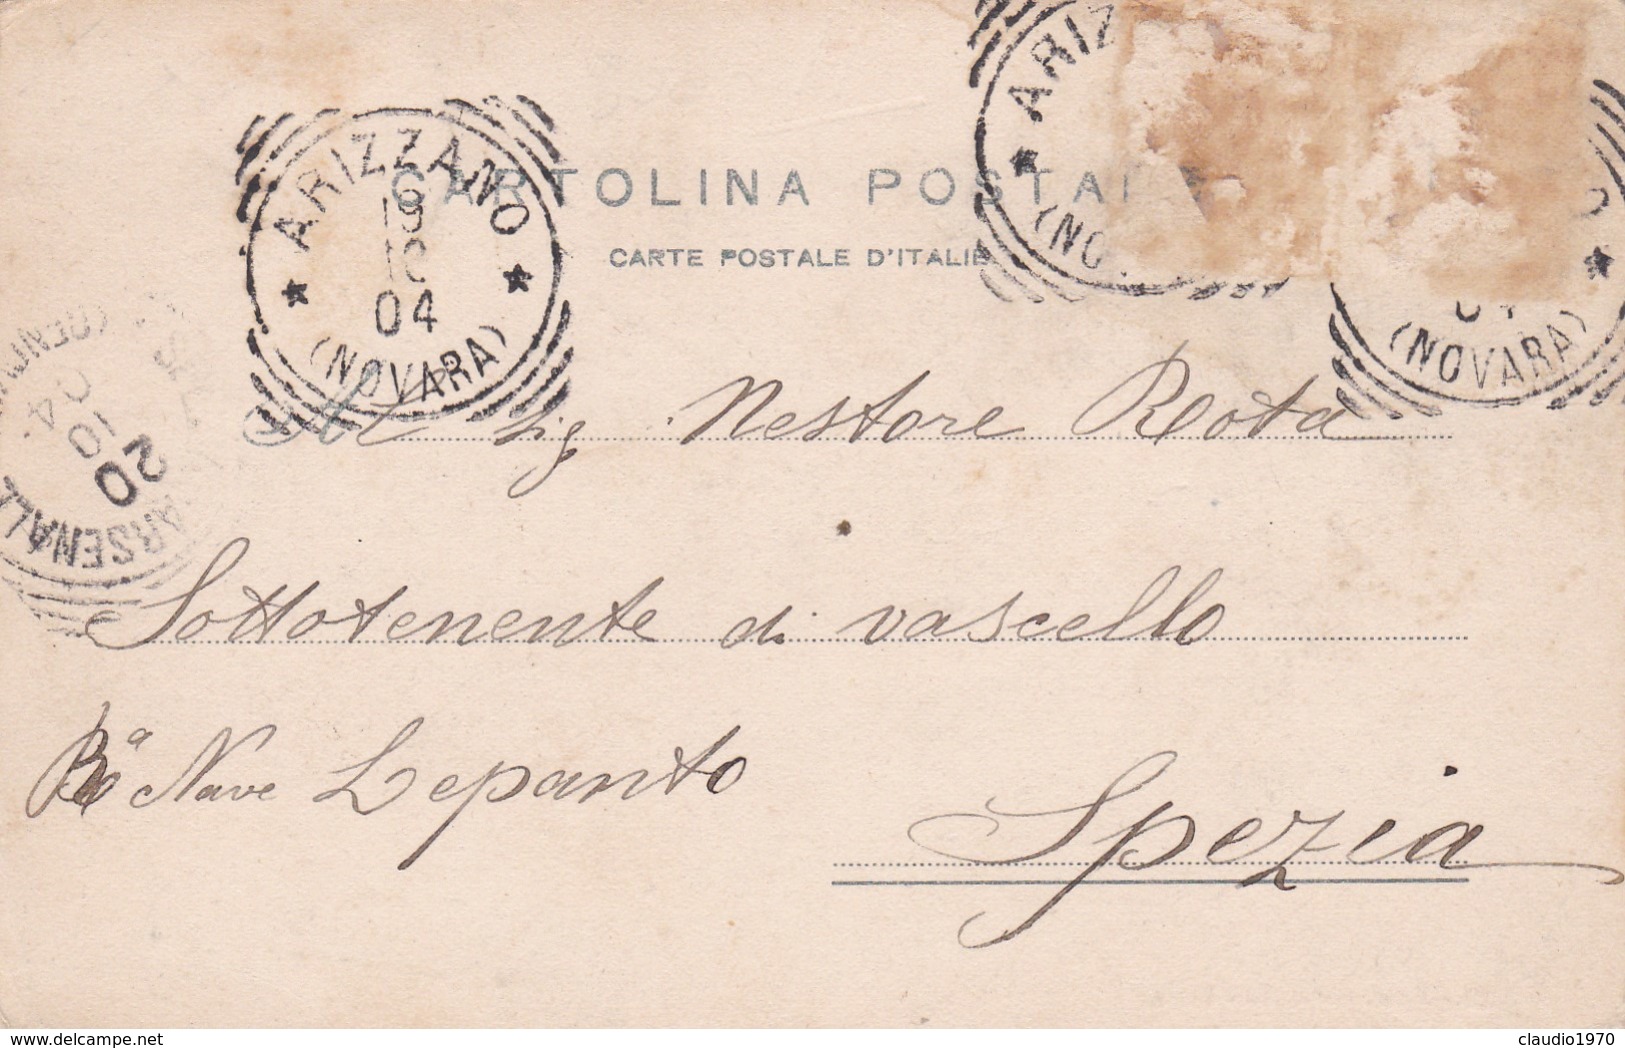 ARIZZANO
19
10
04
(NOVARA)
ARIZ
(NO
04
(NOVARA)
CARTOLINA POSTAL
CARTE POSTALE D'ITALIE
ARSENALE
20
10
04
(GENOVA
Al Sig Nestore Rota
Sottotenente di vascello
Ra Nave Lepanto
Spezia
www.delcampe.net
claudio1970